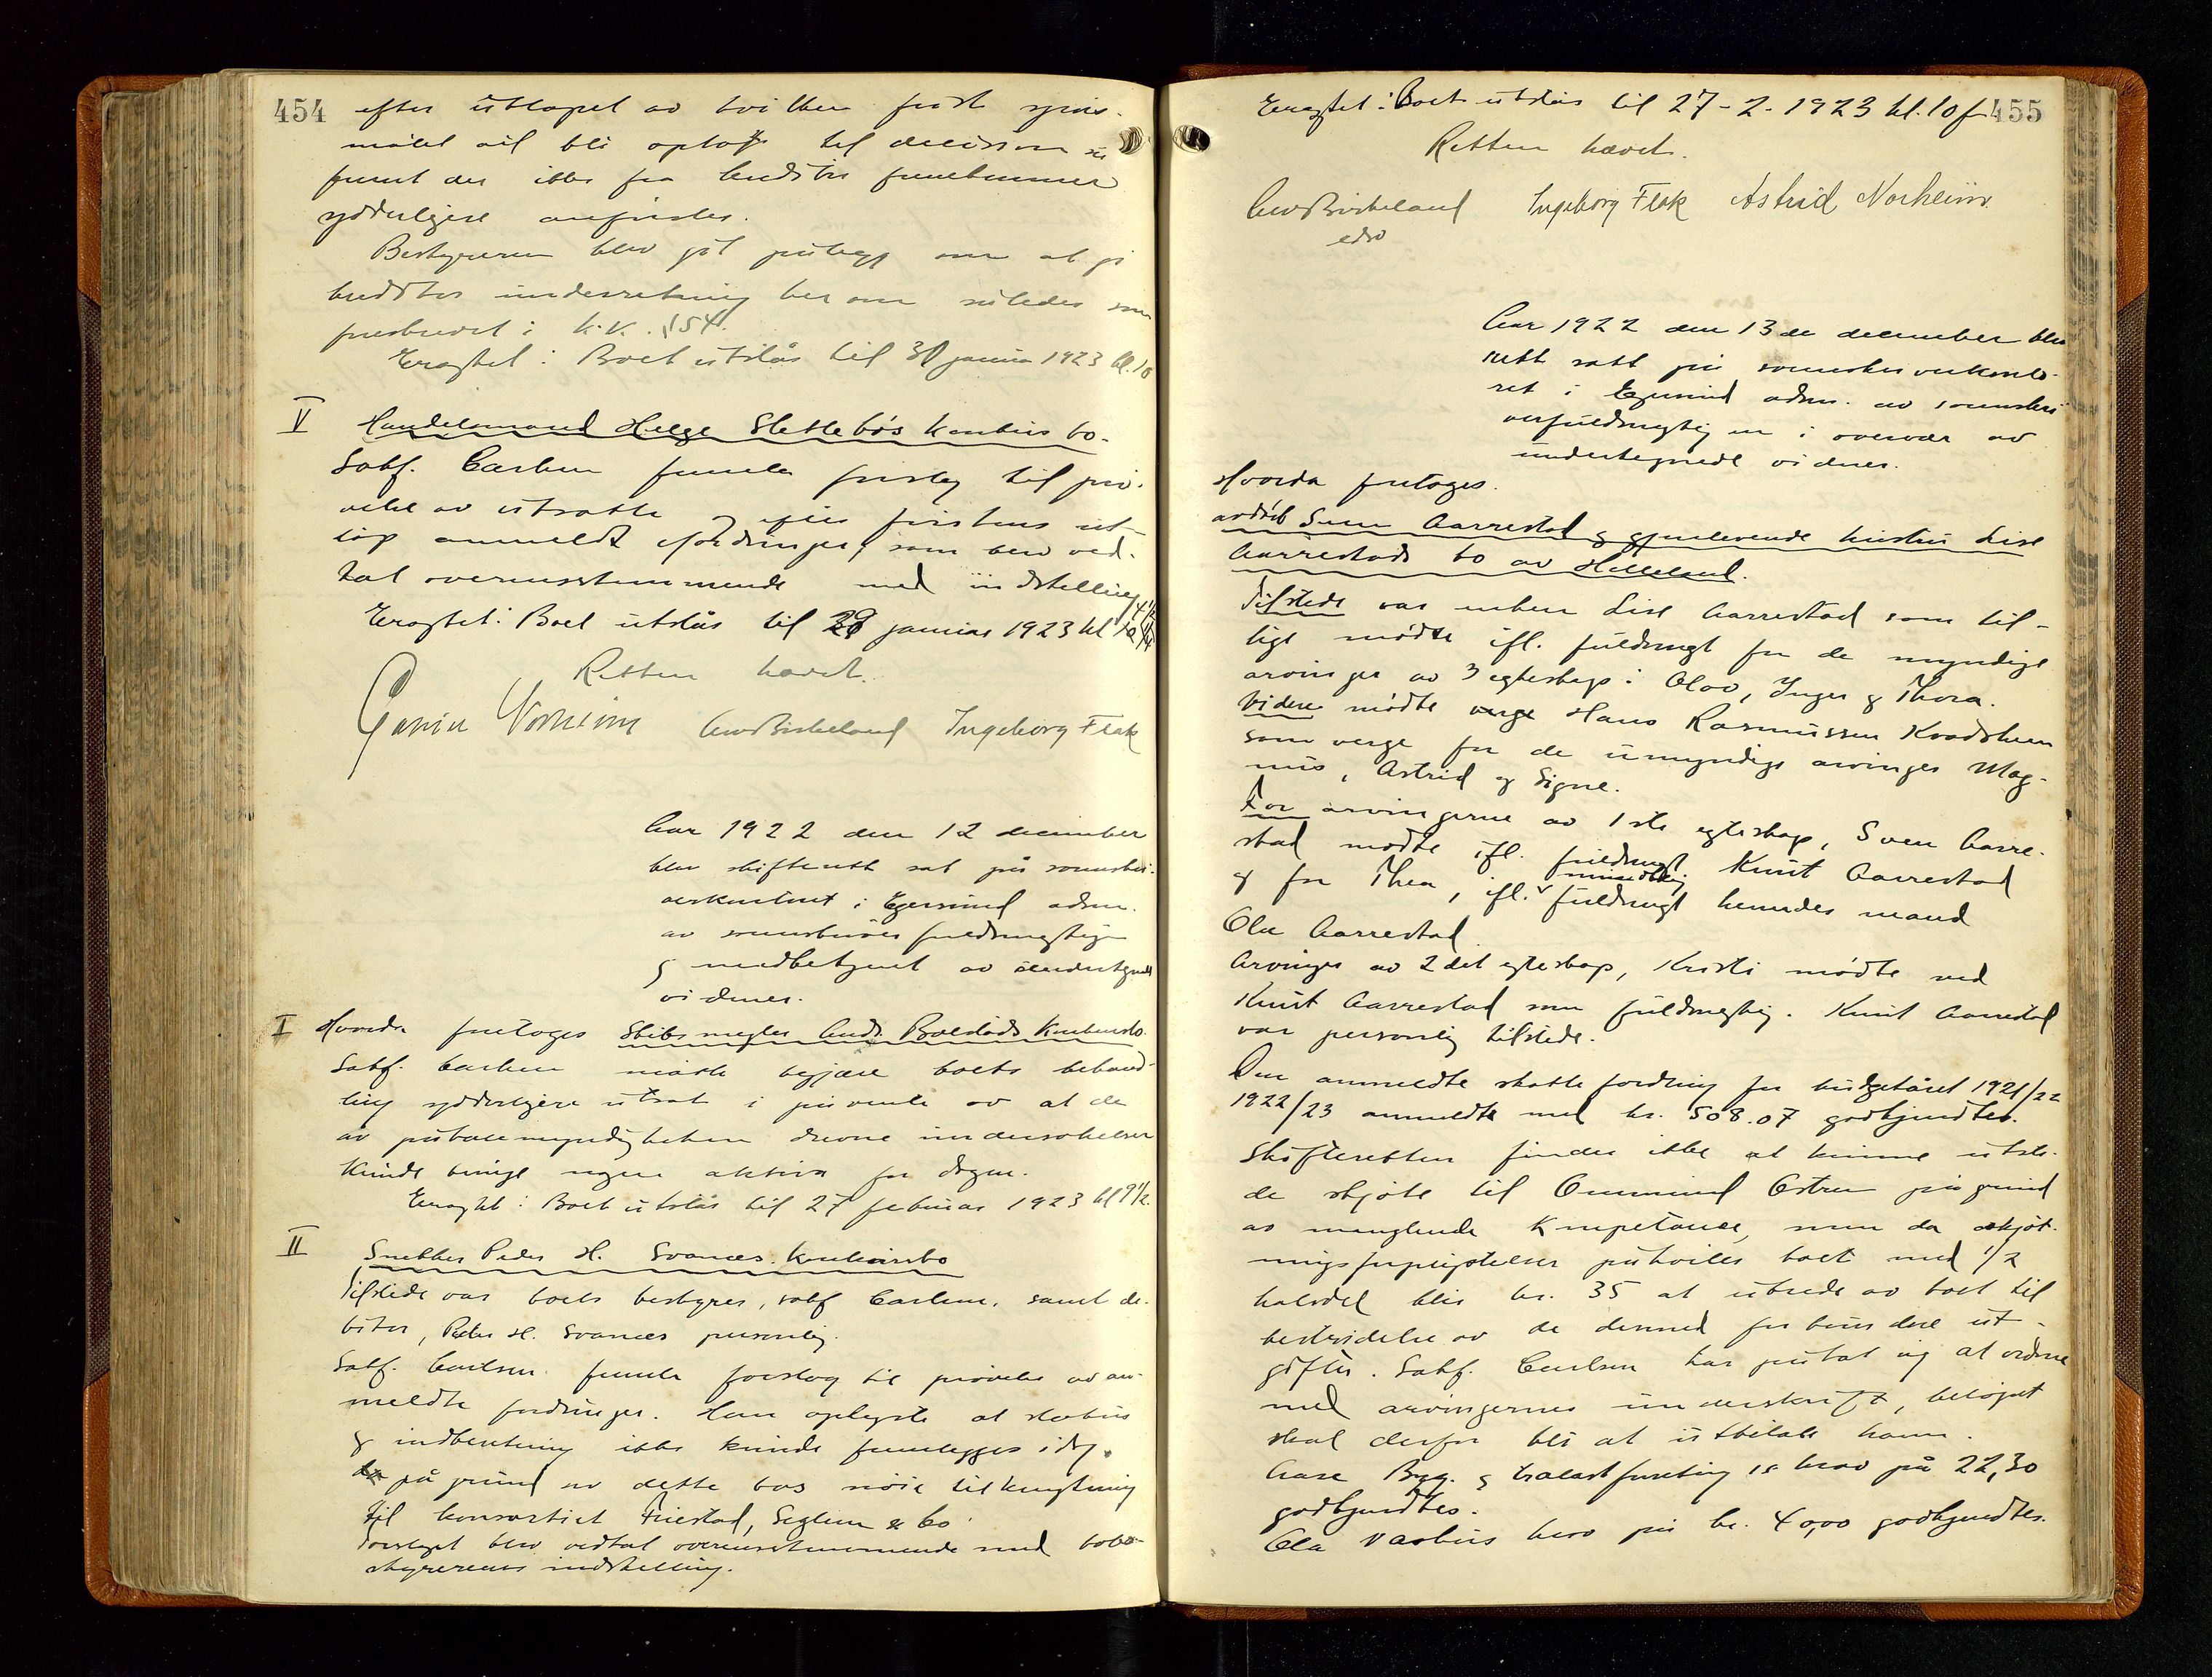 454
efter utløpet av hvilken frist spørs-
målet vil bli optat til decision så
fremt der ikke fra kreditor fremkommer
yderligere anførsler.
Bestyreren blev git pålegg om at gi
kreditor underretning herom således som
foreskrevet i k.k. § 54.
Eragtet: Boet utstår til 30 januar 1923 kl. 10
V Handelsmand Helge Slettebøs konkurs bo.
Sakf. Carlsen fremla forslag til prø-
velse av utsatte og efter fristens ut-
løp anmeldte fordringer, som blev ved-
tat overensstemmende med indstilling
Eragtet: Boet utstår til 29 januar 1923 kl
Retten hævet.
Norheim Birkeland Ingeborg Flak
Aar 1922 den 12 december
blev skifterett sat på sorenskri-
verkontoret i Egersund adm.
av sorenskriver fuldmegtigen
og medbetjent av undertegnede
vidner.
I Hvorda foretoges Skibsmegler Ands. Bolstads konkursbo.
Sakf. Carlsen måtte begjære boets behand-
ling yderligere utsat i påvente av at de
av påtalemyndigheten drevne undersøkelser
kunde bringe nogen aktiva for dagen.
Eragtet: Boet utstår til 27 februar 1923 kl 9½.
II Snekker Peder H. Svanes konkursbo
Tilstede var boets bestyrer, sakf Carlsen, samt de-
bitor, Peder H. Svanes personlig.
Sakf. Carlsen fremla forslag til prøvelse av an-
meldte fordringer. Han oplyste at status
og indberetning ikke kunde fremlegges idag
på grund av dette bos nøie tilknytning
til konsortiet Friestad, Seglem & Co.
Forslaget blev vedtat overensstemmende med bobe-
styrerens indstilling.
455
Eragtet: Boet utstår til 27-2-1923 kl. 10 f
Retten hævet.
Birkeland Ingeborg Flak Astrid Norheim
edsv
Aar 1922 den 13de december blev
rett satt på sorenskriverkonto-
ret i Egersund adm. av sorenskri
verfuldmegtigen i overvær av
undertegnede vidner.
Hvorda foretoges.
avdøde Sven Aarrestad og gjenlevende hustru Lise
Aarrestads bo av Helleland.
Tilstede var enken Lise Aarrestad som til-
lige mødte ifl. fuldmagt for de myndige
arvinger av 3 egteskap: Olav, Inger og Thora.
Videre mødte verge Hans Rasmussen Kvadsheim
som verge for de umyndige arvinger Mag-
nus, Astrid og Signe.
For arvingerne av 1ste egteskap, Sven Aarre-
stad mødte ifl. fuldmagt Knut Aarrestad
og for Thea, ifl. mundtlig fuldmagt hennes mand
Ole Aarrestad
Arvinger av 2det egteskap, Kristi mødte ved
Knut Aarrestad som fuldmegtig. Knut Aarrestad
var personlig tilstede.
Den anmeldte skattefordring for budgetåret 1921/22
1922/23 anmeldt med kr. 508.07 godkjendtes.
Skifteretten finder ikke at kunne utste-
de skjøte til Ommund Østrem på grund
av manglende kompetance, men da skjøt-
ningsforpligtelsen påhviler boet med 1/2
halvdel blir kr. 35 at utrede av boet til
bestridelse av de dermed forbundne ut-
gifter. Sakf. Carlsen har påtat sig at ordne
med arvingernes underskrift, beløpet
skal derfor bli at utbetale ham.
Aase Byg. og trælastforretnings krav på 22,30
godkjendtes.
Ola Varhus krav på kr. 40,00 godkjendtes.